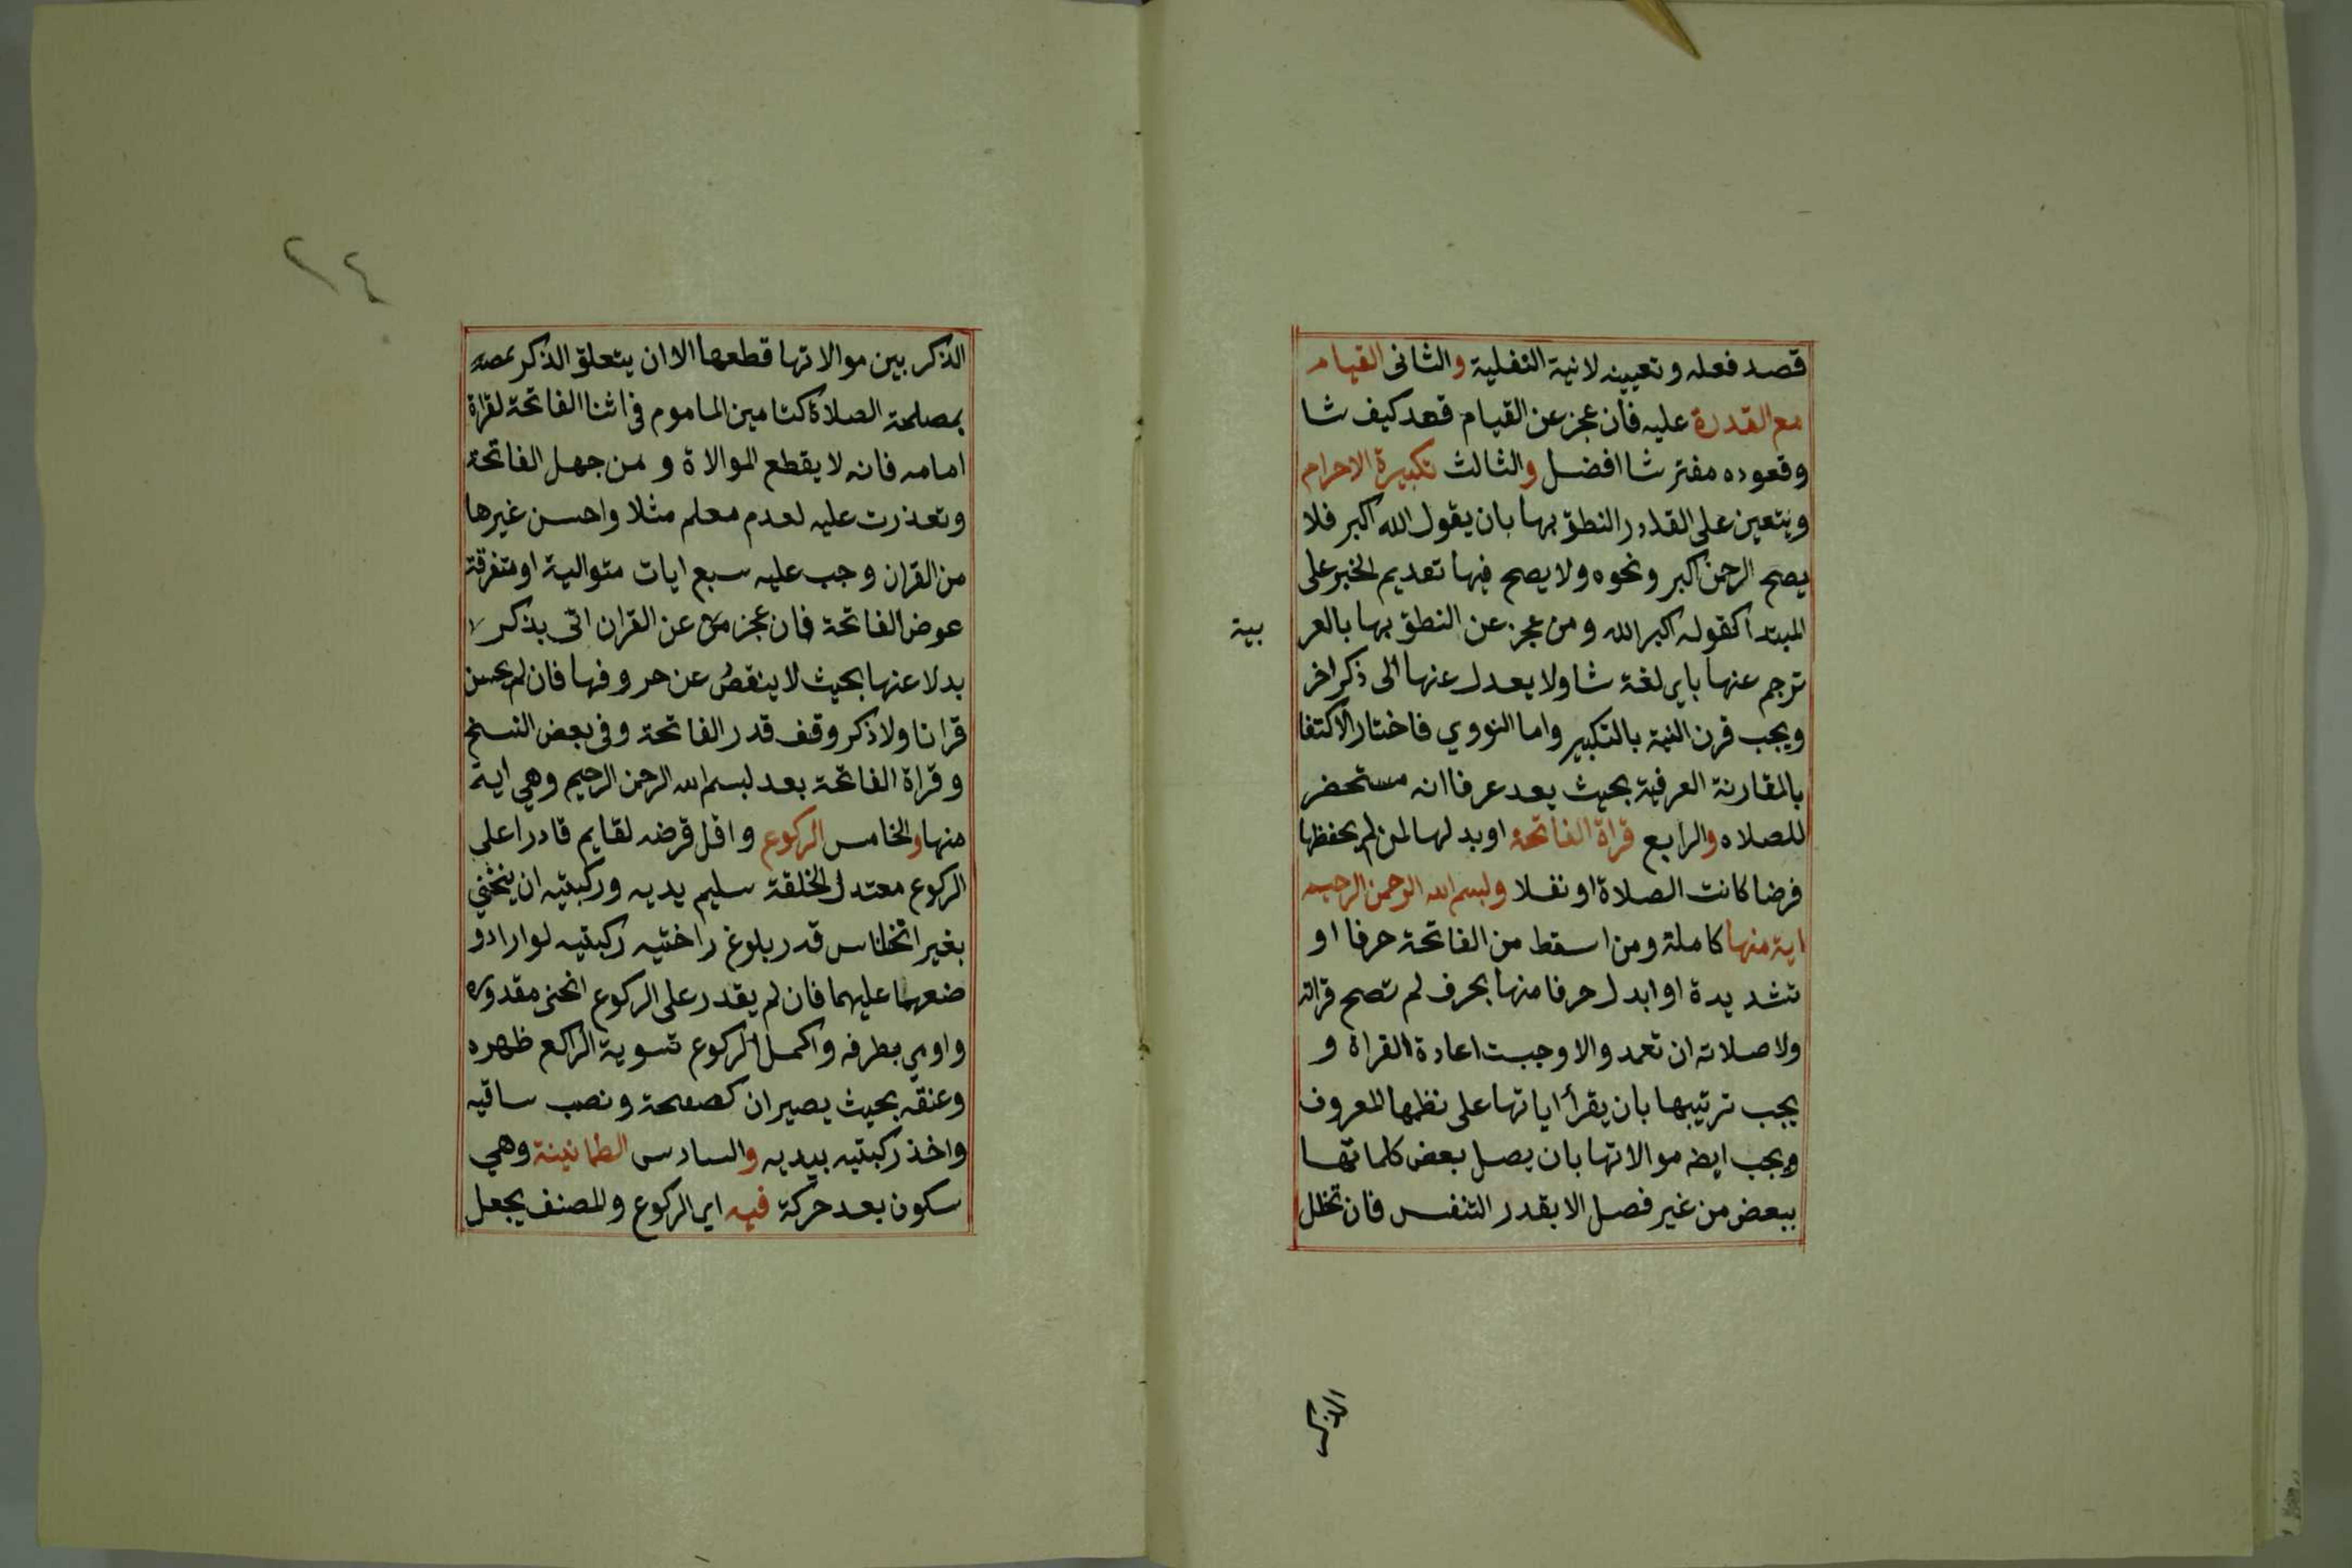 قصد فعله وتعيينه لانية النفلية والثانى القيام
مع القدرة عليه فان عجز عن القيام قعد كيف شا
وقعوده مفترشا افضل والثالث تكبيرة الاحرام
ويتعين على القادر النطق بها بان يقول الله اكبر فلا
يصح الرحمن اكبر ونحوه ولا يصح فيها تعديم الخبر على
المبتدا كقوله اكبر الله ومن عجز عن النطق بها بالعر
بية
ترجم عنها باي لغة شا ولا يعدل عنها الى ذكر اخر
ويجب قرن النية بالتكبير واما النووي فاختار الاكتفا
بالمقارنة العرفية بحيث يعد عرفا انه مستحضر
للصلاه والرابع قراة الفاتحة او بدلها لمن لم يحفظها
فرضا كانت الصلاة او نفلا ولبسم الله الرحمن الرحيم
اية منها كاملة ومن اسقط من الفاتحة حرفا او
تشديدة او ابدل حرفا منها بحرف لم تصح قراته
ولا صلاته ان تعمد والا وجبت اعادة القراة و
يجب ترتيبها بان يقرأ اياتها على نظمها المعروف
ويجب ايضه موالاتها بان يصل بعض كلماتها
ببعض من غير فصل الا بقدر التنفس فان تخلل
الذكر
٢٤
الذكر بين موالاتها قطعها الا ان يتعلق الذكر بمصه
بمصلحة الصلاة كتامين الماموم فى اثنا الفاتحة لقراة
امامه فانه لا يقطع الموالاة ومن جهل الفاتحة
وتعذرت عليه لعدم معلم مثلا واحسن غيرها
من القران وجب عليه سبع ايات متوالية او متفرقة
عوض الفاتحة فان عجز عن القران اتى بذكر لا
بدلا عنها بحيث لا ينقص عن حروفها فان لم يحسن
قرانا ولا ذكر وقف قدر الفاتحة وفى بعض النسخ
وقراة الفاتحة بعد لبسم الله الرحمن الرحيم وهي اية
منها والخامس الركوع واقل فرضه لقايم قادرا على
الركوع معتدل الخلقة سليم يديه وركبتيه ان ينحني
بغير انخناس قدر بلوغ راختيه ركبتيه لو اراد و
ضعهما عليهما فان لم يقدر على الركوع انحنى مقدوره
واومي بطرفه واكمل الركوع تسوية الراكع ظهره
وعنقه بحيث يصيران كصفحة ونصب ساقيه
واخذ ركبتيه بيديه والسادس الطمانينة وهي
سكون بعد حركة فيه اي الركوع وللمصنف يجعل